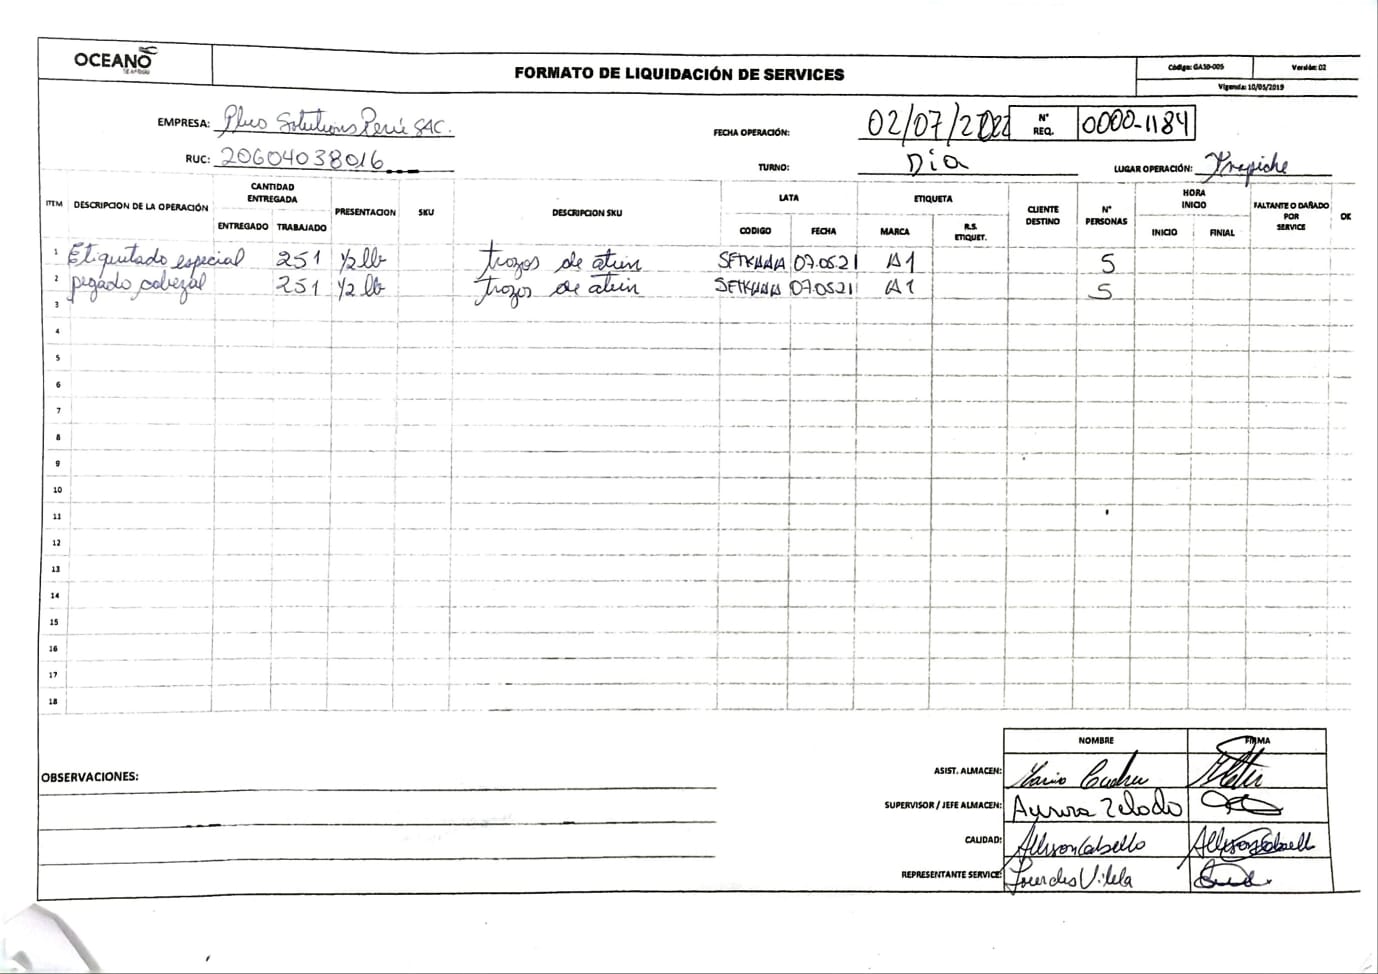 OCEANO
FORMATO DE LIQUIDACIÓN DE SERVICES
Código: GA50-005
Versión: 02
Vigencia: 10/05/2019
EMPRESA: Plus Solutions Perú SAC.
FECHA OPERACIÓN: 02/07/2022
N° REQ. 0000-1184
RUC: 20604038016
TURNO: Día
LUGAR OPERACIÓN: Trapiche
ITEM DESCRIPCION DE LA OPERACIÓN CANTIDAD ENTREGADA PRESENTACION SKU DESCRIPCION SKU LATA ETIQUETA CLIENTE DESTINO N° PERSONAS HORA INICIO FALTANTE O DAÑADO POR SERVICE OK
ENTREGADO TRABAJADO CODIGO FECHA MARCA R.S. ETIQUET. INICIO FINIAL
1 Etiquetado especial 251 1/2 lb trozos de atún 07.05.21 A1 5
2 pegado cabezal 251 1/2 lb trozos de atún 07.05.21 A1 5
3
4
5
6
7
8
9
10
11
12
13
14
15
16
17
18
NOMBRE FIRMA
OBSERVACIONES:
ASIST. ALMACEN:
SUPERVISOR / JEFE ALMACEN: Aurora Zelada
CALIDAD: Allyson Cabello
REPRESENTANTE SERVICE: Lourdes Vilela